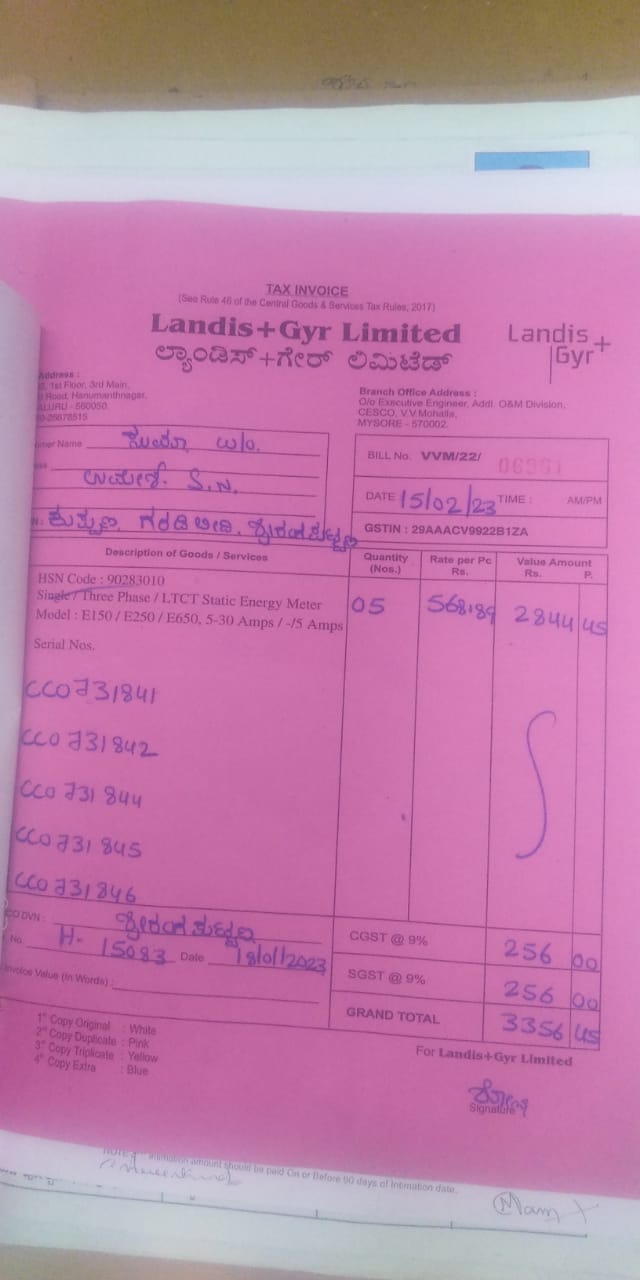 TAX INVOICE
(See Rule 46 of the Central Goods & Services Tax Rules, 2017)
Landis+Gyr Limited
ಲ್ಯಾಂಡಿಸ್+ಗೇರ್ ಲಿಮಿಟೆಡ್
Landis+
Gyr
Address :
1st Floor, 3rd Main,
Road, Hanumanthnagar,
- 560050
26678515
Branch Office Address :
O/o Executive Engineer, Addl. O&M Division,
CESCO, V.V.Mohalla,
MYSORE - 570002.
Name w/o.
BILL No. VVM/22/
ಉಮೇಶ್. S.N.
DATE 15/02/23 TIME : AM/PM
GSTIN : 29AAACV9922B1ZA
Description of Goods / Services
Quantity (Nos.)
Rate per Pc Rs.
Value Amount Rs. P.
HSN Code : 90283010
Single / Three Phase / LTCT Static Energy Meter
Model : E150 / E250 / E650, 5-30 Amps / -/5 Amps
05 568.89 2844 45
Serial Nos.
CC0731841
CC0731842
CC0731844
CC0731845
CC0731846
DVN :
No. H- 15083 Date 18/01/2023
Invoice Value (In Words) :
CGST @ 9% 256 00
SGST @ 9% 256 00
GRAND TOTAL 3356 45
1st Copy Original : White
2nd Copy Duplicate : Pink
3rd Copy Triplicate : Yellow
4th Copy Extra : Blue
For Landis+Gyr Limited
Signature
amount should be paid On or Before 90 days of Intimation date.